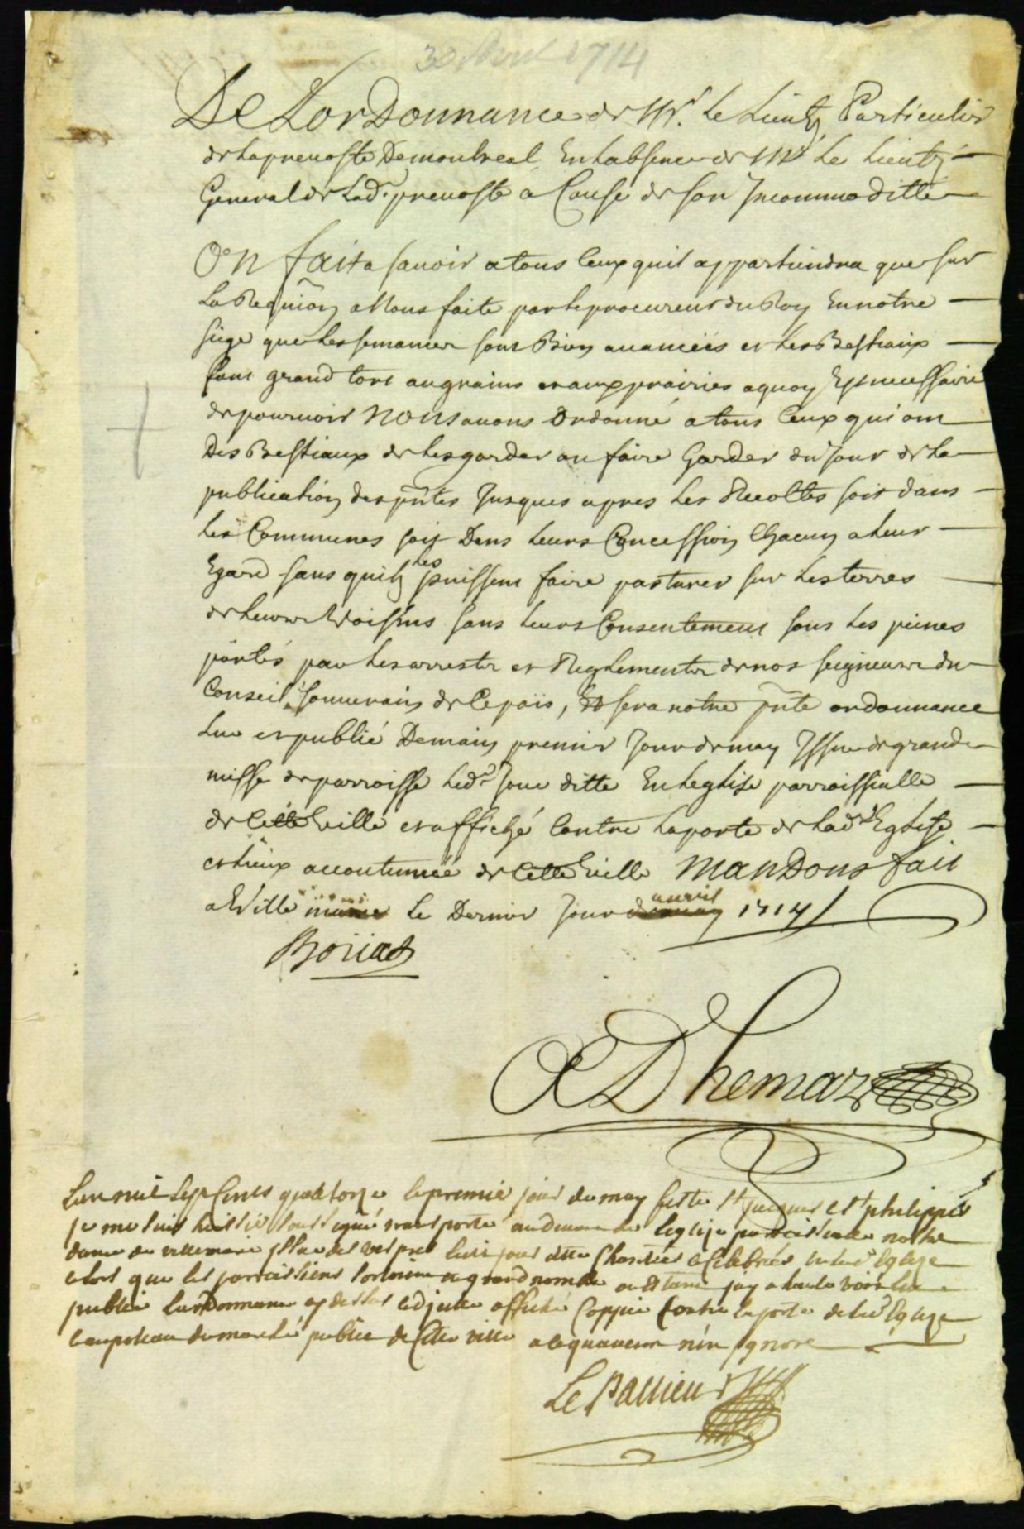 30 Avril 1714
De Lordonnance de Mr. Le Lieut. Particulier
de la prevosté De montreal En Labsence de Mr. Le Lieut.
General de Lad. prevosté a Cause de son Incommoditté
On fait a savoir a tous Ceux quil appartiendra que sur
La Requion a Nous faite par le procureur du Roy En notre
siege que Les semances sont Bien avancéés et Les Bestiaux
font grand tort au grains et aux prairies a quoy Est necessaire
de pourvoir Nous avons Ordonné a tous Ceux qui ont
Des Bestiaux de Les garder ou faire Garder du Jour de La
publication des pntes Jusques apres Les Recoltes soit dans
Les Communes soit Dans Leurs Concession Chacun a Leur
Egard sans quils Les puissent faire pasturer sur Les terres
de Leurs Voisins sans Leurs Consentement sous Les peines
portés par Les arrests et Reglements de nos seigneurs du
Conseil souverain de Ce païs, Et sera notre pnte ordonnance
Lue et publié Demain premier Jour de may Issue de grande
messe de parroisse Led. Jour ditte En Leglise parroissialle
de Cette Ville et affiché Contre La porte de Lad. Eglise
et Lieux accoutumée de Cette Ville Mandons fait
a Ville marie Le Dernier Jour avril 1714
Boüat
ADhemar
Lan mil Sept Cents quatorze le premier jour du may feste St jacques et St philippes
je me suis huissier soussigné transporté audevant de Leglise parroissialle nostre
dame de villemarie issue des vespres Cedit jour ditte Chantées et Celebrées en lad Eglise
alors que les parroissiens sortoient en grand nombre ou estant jay a haute voix lue
publié Lordonnance cy dessus et dautre affiché Coppie Contre la porte de lad Eglise
et au poteau du marché public de Cette ville a ce quaucun nen jgnore
Le Pallieur